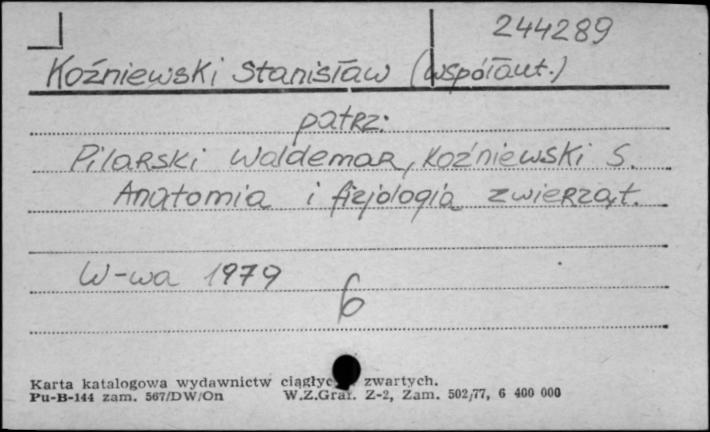 244289
Koźniewski Stanisław (współaut.)
patrz:
Pilarski Waldemar, Koźniewski S.
Anatomia i fizjologia zwierząt.
W-wa 1979
6
Karta katalogowa wydawnictw zwartych.
Pu-B-144 zam. 567/DW/On W.Z.Graf. Z-2, Zam. 502/77, 6 400 000